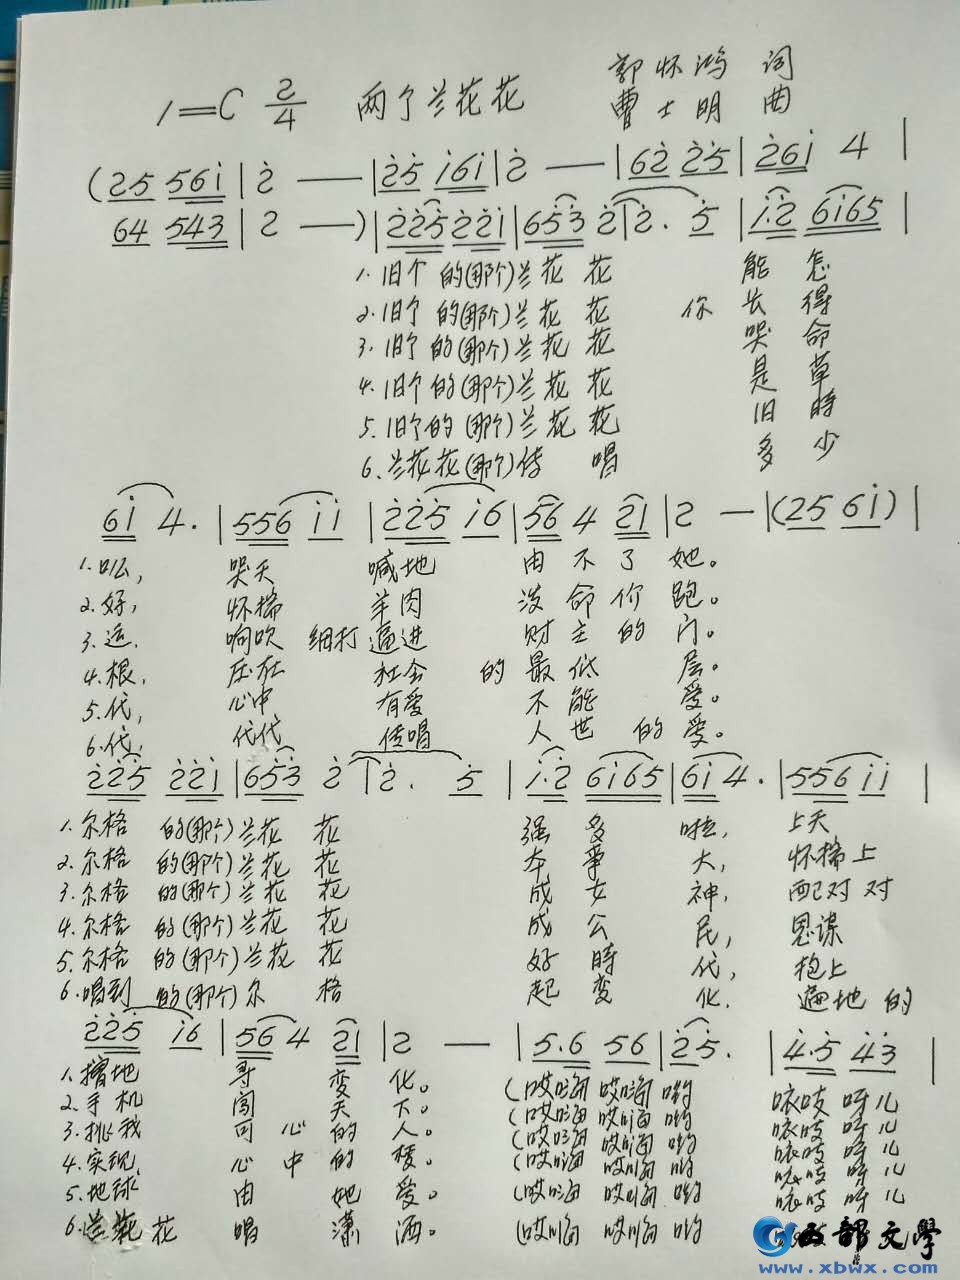 1=C 2/4 两个兰花花 郭怀鸿 词
曹士明 曲
(25 56i | 2 — | 25 i6i | 2 — | 62 25 | 26i 4 |
64 543 | 2 — ) | 225 221 | 653 2 | 2. 5 | i.2 6i65 |
1.旧个的(那个)兰花花 能怎
2.旧个的(那个)兰花花 你长得
3.旧个的(那个)兰花花 哭命
4.旧个的(那个)兰花花 是草
5.旧个的(那个)兰花花 旧時
6.兰花花(那个)传唱 多少
6i 4. | 556 ii | 225 i6 | 56 4 2i | 2 — | (25 6i) |
1.吆, 哭天 喊地 由不了她。
2.好, 怀揣 羊肉 泼命你跑。
3.运. 响吹细打 逼进 财主的门。
4.根, 压在 社会的最低层。
5.代, 心中 有爱 不能爱。
6.代, 代代 传唱 人世的爱。
225 22i | 653 2 | 2. 5 | i.2 6i65 | 6i 4. | 556 ii |
1.尔格 的(那个)兰花花 强多啦, 上天
2.尔格 的(那个)兰花花 本事大, 怀揣上
3.尔格 的(那个)兰花花 成女神, 配对对
4.尔格 的(那个)兰花花 成公民, 恩谋
5.尔格 的(那个)兰花花 好時代, 抱上
6.唱到 的(那个)尔格 起变化. 遍地的
225 i6 | 56 4 2i | 2 — | 5.6 56 | 25. | 4.5 43 |
1.揞地 寻变化。 (哎嗨 哎嗨哟 咴吱呀儿
2.手机 闯天下。 (哎嗨 哎嗨哟 咴吱呀儿
3.挑我 可心的人。 (哎嗨 哎嗨哟 咴吱呀儿
4.实现 心中的梦。 (哎嗨 哎嗨哟 咴吱呀儿
5.地球 由她爱。 (哎嗨 哎嗨哟 咴吱呀儿
6.兰花花 唱潇洒。 (哎嗨 哎嗨哟
西部文学
www.xbwx.com